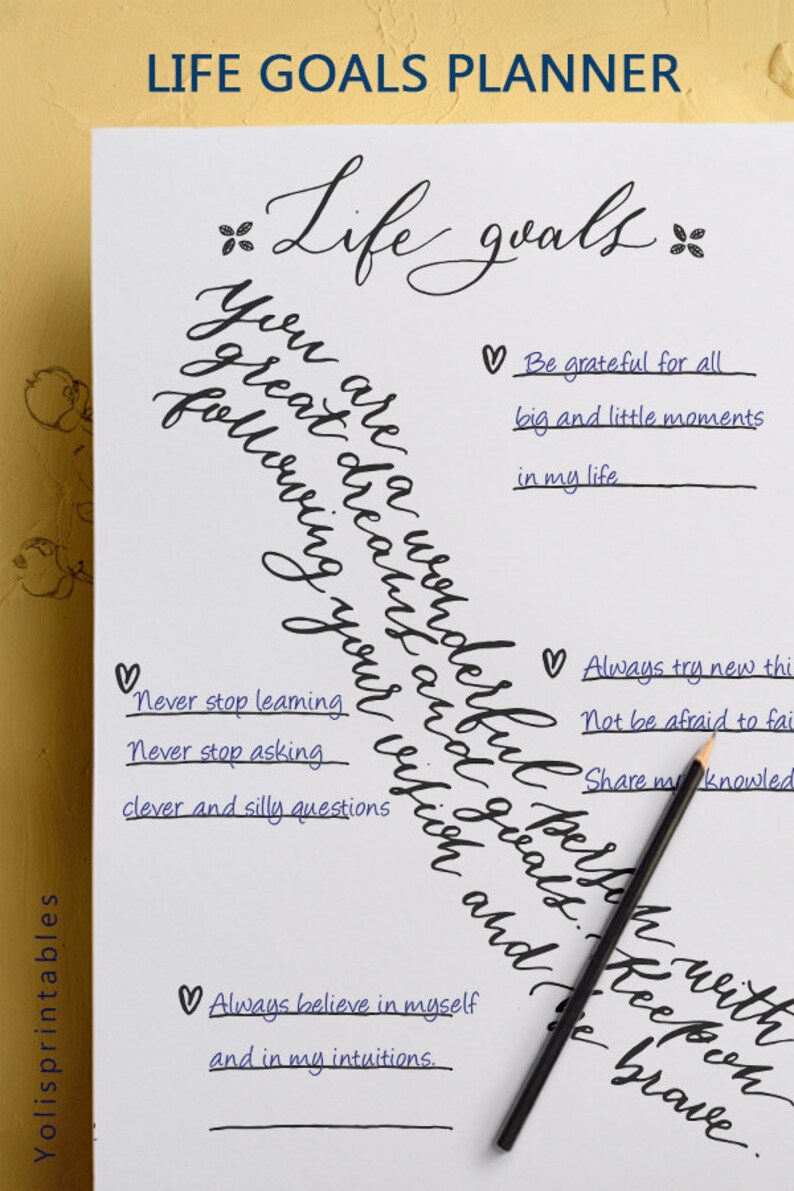 LIFE GOALS PLANNER
Life goals
You are a wonderful person with
great dreams and goals. Keep on
following your vision and be brave.
Be grateful for all
big and little moments
in my life
Never stop learning
Never stop asking
clever and silly questions
Always try new thi
Not be afraid to fai
Share my knowled
Always believe in myself
and in my intuitions.
Yolisprintables